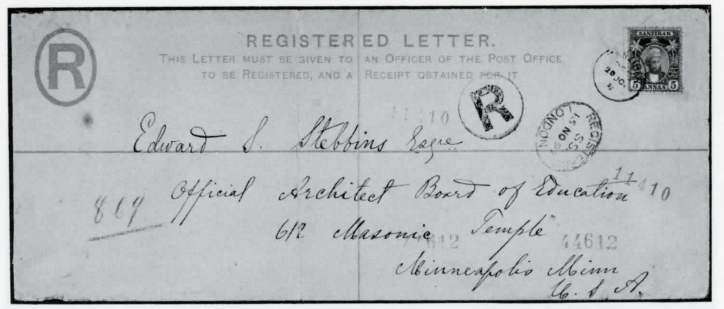 REGISTERED LETTER.
THIS LETTER MUST BE GIVEN TO AN OFFICER OF THE POST OFFICE
TO BE REGISTERED, AND A RECEIPT OBTAINED FOR IT
R
ZANZIBAR
5 ANNAS 5
R
11410
REGISTERED
LONDON
15 NO
Edward S. Stebbins Esqre
Official Architect Board of Education
11410
809
612 Masonic Temple
44612
Minneapolis Minn
U. S. A.